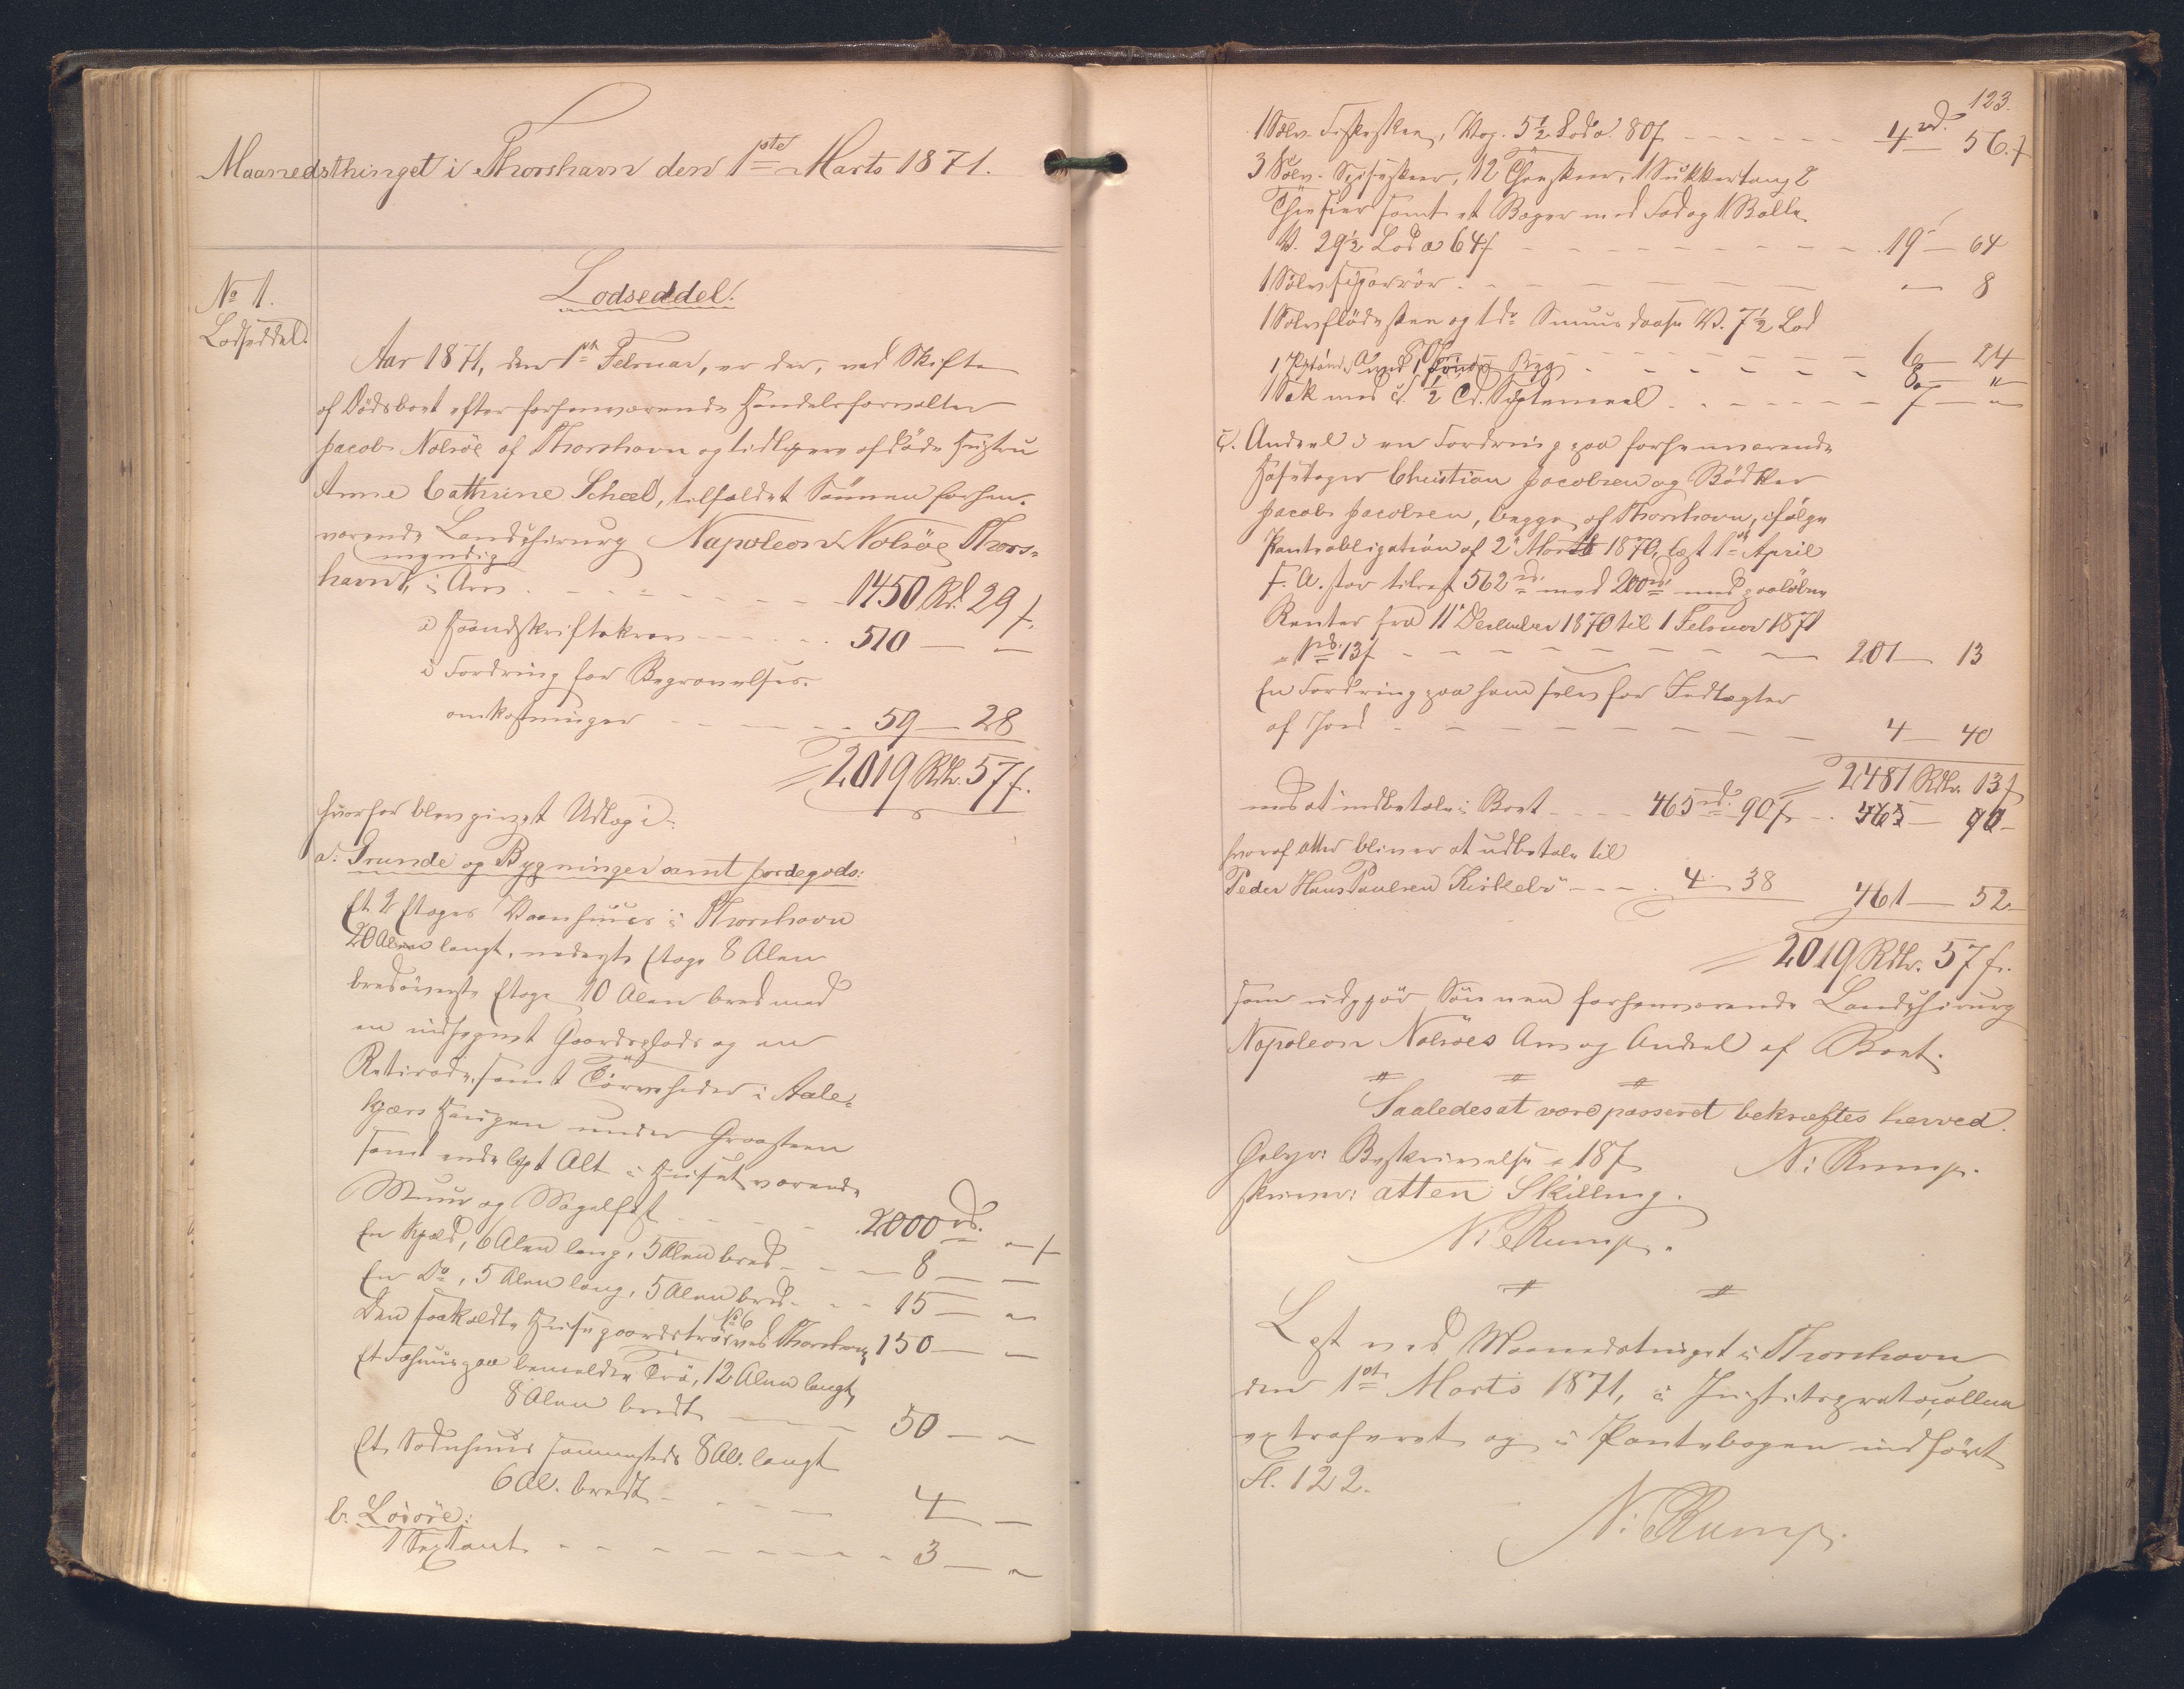 Maanedsthinget i Thorshavn den 1ste Marts 1871.
No 1.
Lodseddel.
Lodseddel.
Aar 1871, den 1ste Februar, er der, ved Skifte
af Dödsboet efter forhenværende Handelsforvalter
Jacob Nolsöe af Thorshavn og tidligere afdöde Hustru
Anne Cathrine Schæl, tilfaldet Sönnen forhen-
værende Landchirurg Napoleon Nolsöe Thors-
myndig
havn, i Arv - - - 1450 Rd. 29 f.
i Haandskriftskrav - - - 510 — —
i Fordring for Begravelses-
omkostninger - - - 59 — 28
2019 Rdlr. 57 f.
hvorfor blev givet Udlæg i:
a: Grunde og Bygninger samt Jordegods:
Et 2 Etages Vaanhuus i Thorshavn
20 Alen langt, nederste Etage 8 Alen
bred överste Etage 10 Alen bred med
en indhegnet Gaardsplads og en
Retirade, samt Törveheder i Aale-
kjærs Haugen under Graasteen
samt endeligt Alt i Huset værende
Muur og Nagelfast - - - 2000 rd. " f
En Kjeld, 6 Alen lang, 5 Alen bred - - - 8 — —
En Do, 5 Alen lang, 5 Alen bred - - - 15 — "
Den saakaldte Huusgaardströ No 6 ved Thorshavn 150 — "
Et Fæhuus paa bemeldte Trö, 12 Alen langt,
8 Alen bredt - - - 50 — "
Et Sodnhuus sammesteds 8 Al. langt
6 Al. bredt - - - 4 —
b. Lösöre:
1 Sextant - - - 3 — "
123.
1 Sölv Fiskeskee, Væg. 5½ Lod a 80 f - - - 4 rd. 56. f
3 Sölv Spiseskeer, 12 Theskeer, 1 Sukkertang 2
Thesier samt et Bæger med Fod og 1 Bolle
V. 29½ Lod a 64 f - - - 19 — 64
1 Sölv Cigarrör - - - " — 8
1 Sölvflödeskee og 1 do Snuusdaase V. 7½ Lod
a 80 f - - - 6 — 24
med 1 Tönde Byg - - - 8 — "
1 Sæk med ½ Td. Sigtemeel - - - 7 — "
c. Andeel i en Fordring paa forhenværende
Huustager Christian Jacobsen og Bödker
Jacob Jacobsen, begge af Thorshavn, ifölge
Pantobligation af 2 Marts 1870, læst 1ste April
s. A. stor tilrest 562 rd. med 200 rd. med paalöbne
Renter fra 11 December 1870 til 1 Februar 1871
1 rd. 13 f - - - 201 — 13
En Fordring paa ham selv for Indtægter
af Jord - - - 4 — 40
2481 Rdlr. 13 f
ved at indbetale i Boet - - - 465 rd. 90 f - - 465 — 90 -
hvoraf atter bliver at udbetale til
Peder Hans Poulsen Kirkebö - - - 4 — 38
461 — 52
2019 Rdlr. 57 f.
som udgjör Sönnen forhenværende Landchirurg
Napoleon Nolsöes Arv og Andeel af Boet.
Saaledes at være passeret bekræftes herved.
Gebyr: Beskrivelse = 18 f N: Rump.
skriver: atten Skilling.
N: Rump.
Læst ved Maanedsthinget i Thorshavn
den 1ste Marts 1871, i Justitsprotocollen
extraheret og i Pantebogen indfört
Fl. 122.
N: Rump.